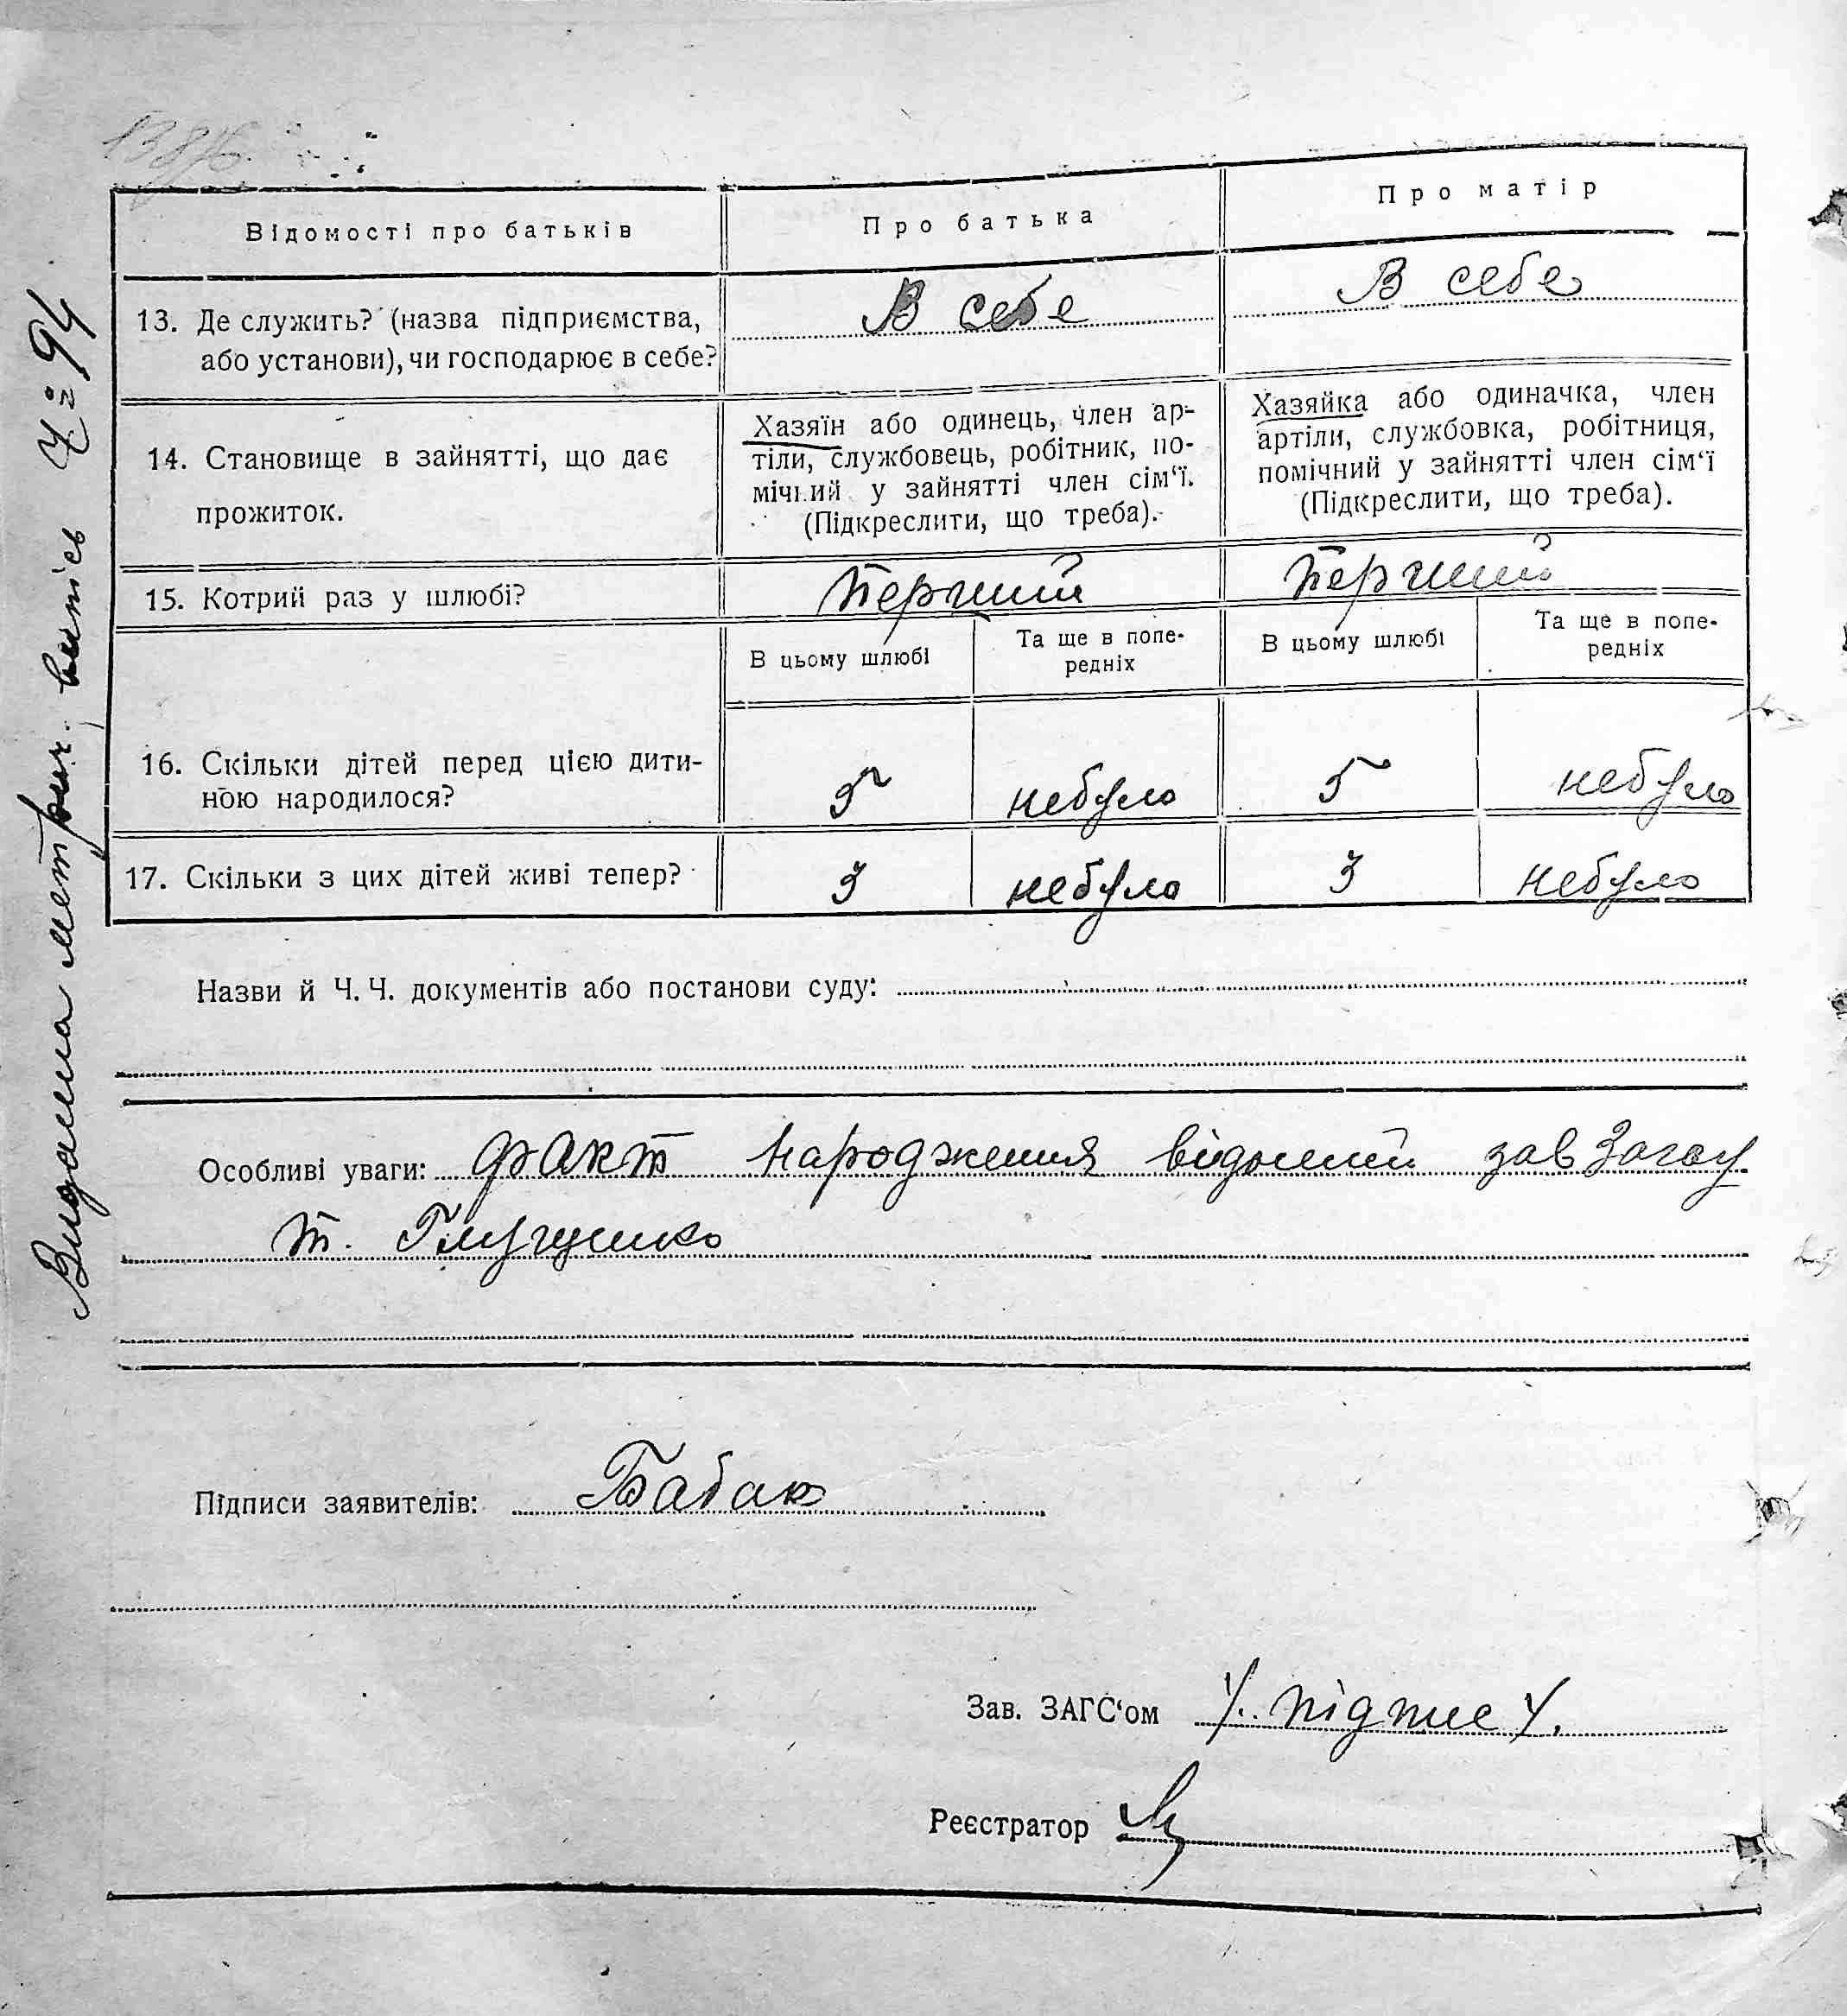 Відомості про батьків
Про батька
Про матір
13. Де служить? (назва підприємства,
або установи), чи господарює в себе?
В себе
В себе
14. Становище в зайнятті, що дає
прожиток.
Хазяїн або одинець, член ар-
тіли, службовець, робітник, по-
мічний у зайнятті член сім‘ї.
(Підкреслити, що треба).
Хазяйка або одиначка, член
артіли, службовка, робітниця,
помічний у зайнятті член сім‘ї
(Підкреслити, що треба).
15. Котрий раз у шлюбі?
Перший
Перший
В цьому шлюбі
Та ще в попе-
редніх
В цьому шлюбі
Та ще в попе-
редніх
16. Скільки дітей перед цією дити-
ною народилося?
5
небуло
5
небуло
17. Скільки з цих дітей живі тепер?
3
небуло
3
небуло
Назви й Ч. Ч. документів або постанови суду:
Особливі уваги: факт народження зав Загсу
т.
Підписи заявителів: Бабак
Зав. ЗАГС‘ом /. підпис /.
Реєстратор
Видана метрич. випісь Ч= 94